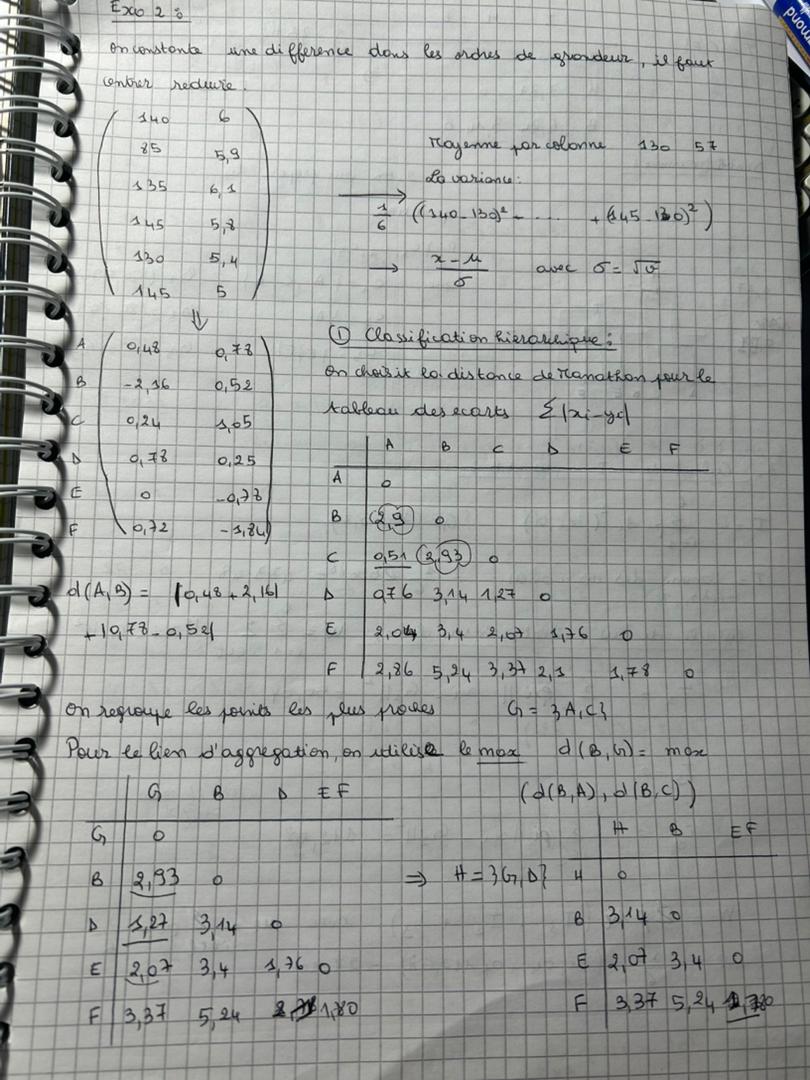 Exo 2 :
On constante une difference dans les ordres de grondeur, il faut
centrer reduire.
140 6
85 5,9
135 6,1
145 5,8
130 5,4
145 5
Moyenne par colonne 130 57
La variance:
1/6 ((140-130)² - ..... + (145-130)²)
→ x-μ/σ avec σ=√v
⇓
A 0,48 0,78
B -2,16 0,52
C 0,24 1,05
D 0,78 0,25
E 0 -0,78
F 0,72 -1,84
① Classification hierarchique :
On choisit la distance de Manathon pour le
tableau des ecarts Σ|xi-yi|
A B C D E F
A 0
B 2,9 0
C 0,51 2,93 0
D 0,76 3,14 1,27 0
E 2,04 3,4 2,07 1,76 0
F 2,86 5,24 3,37 2,1 1,78 0
d(A,B) = |0,48 + 2,16|
+ |0,78 - 0,52|
On regroupe les points les plus proches G = {A,C}
Pour le lien d'aggregation, on utilise le max d(B,G) = max
(d(B,A), d(B,C))
G B D E F
G 0
B 2,93 0
D 1,27 3,14 0
E 2,07 3,4 1,76 0
F 3,37 5,24 1,80
⇒ H = {G,D}
H B E F
H 0
B 3,14 0
E 2,07 3,4 0
F 3,37 5,24